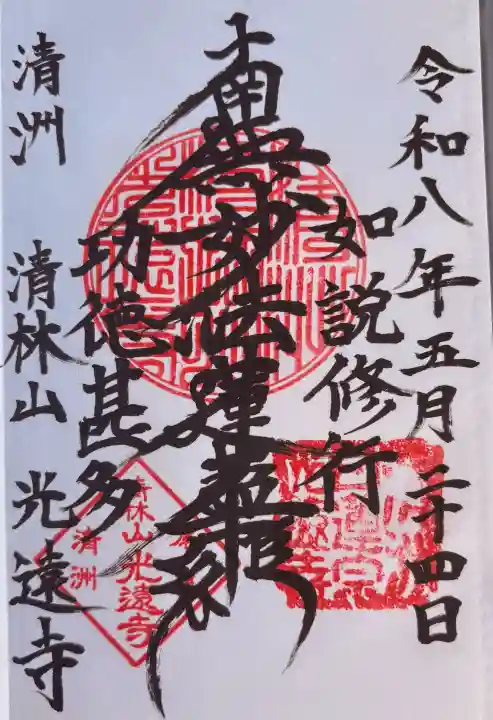 令和八年五月二十四日
如説修行
南無妙法蓮華経
功徳甚多
清洲 清林山 光遠寺
清林山 光遠寺
清洲